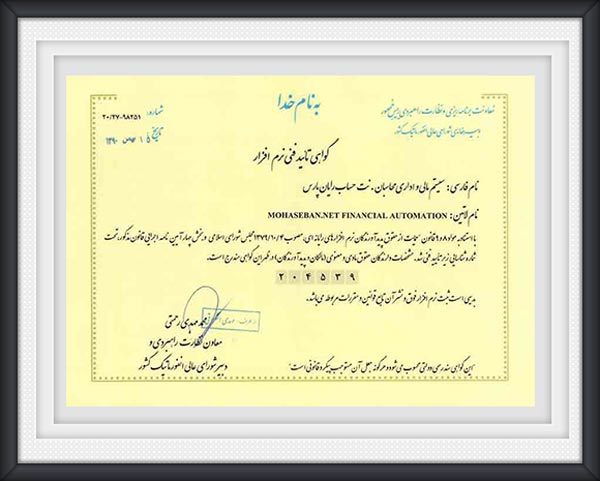 به نام خدا
معاونت برنامه ریزی و نظارت راهبردی رئیس جمهور
دبیرخانه‌ی شورای عالی انفورماتیک کشور
شماره: ۲۰/۲۷-۹۸۲۵۱
تاریخ
گواهی تائید فنی نرم افزار
نام فارسی: سیستم مالی و اداری محاسبان.نت حساب رایان پارس
نام لاتین: MOHASEBAN.NET FINANCIAL AUTOMATION
با استناد به مواد ۸ و ۹ قانون حمایت از حقوق پدیدآورندگان نرم افزارهای رایانه ای، مصوب ۱۳۷۹/۱۰/۴ مجلس شورای اسلامی و بخش چهار آیین نامه اجرایی قانون مذکور، تحت
شماره شناسایی زیر تایید فنی شد. مشخصات دارندگان حقوق مادی و معنوی (مالکان و پدیدآورندگان) در ظهر این گواهی مندرج است.
۲۰۴۵۳۹
بدیهی است ثبت نرم افزار فوق و نشر آن تابع قوانین و مقررات مربوطه می باشد.
از طرف: مهدی
محمد مهدی رحمتی
معاون نظارت راهبردی و
دبیر شورای عالی انفورماتیک کشور
"این گواهی سند رسمی دولتی محسوب می شود و هرگونه جعل آن مستوجب پیگرد قانونی است"